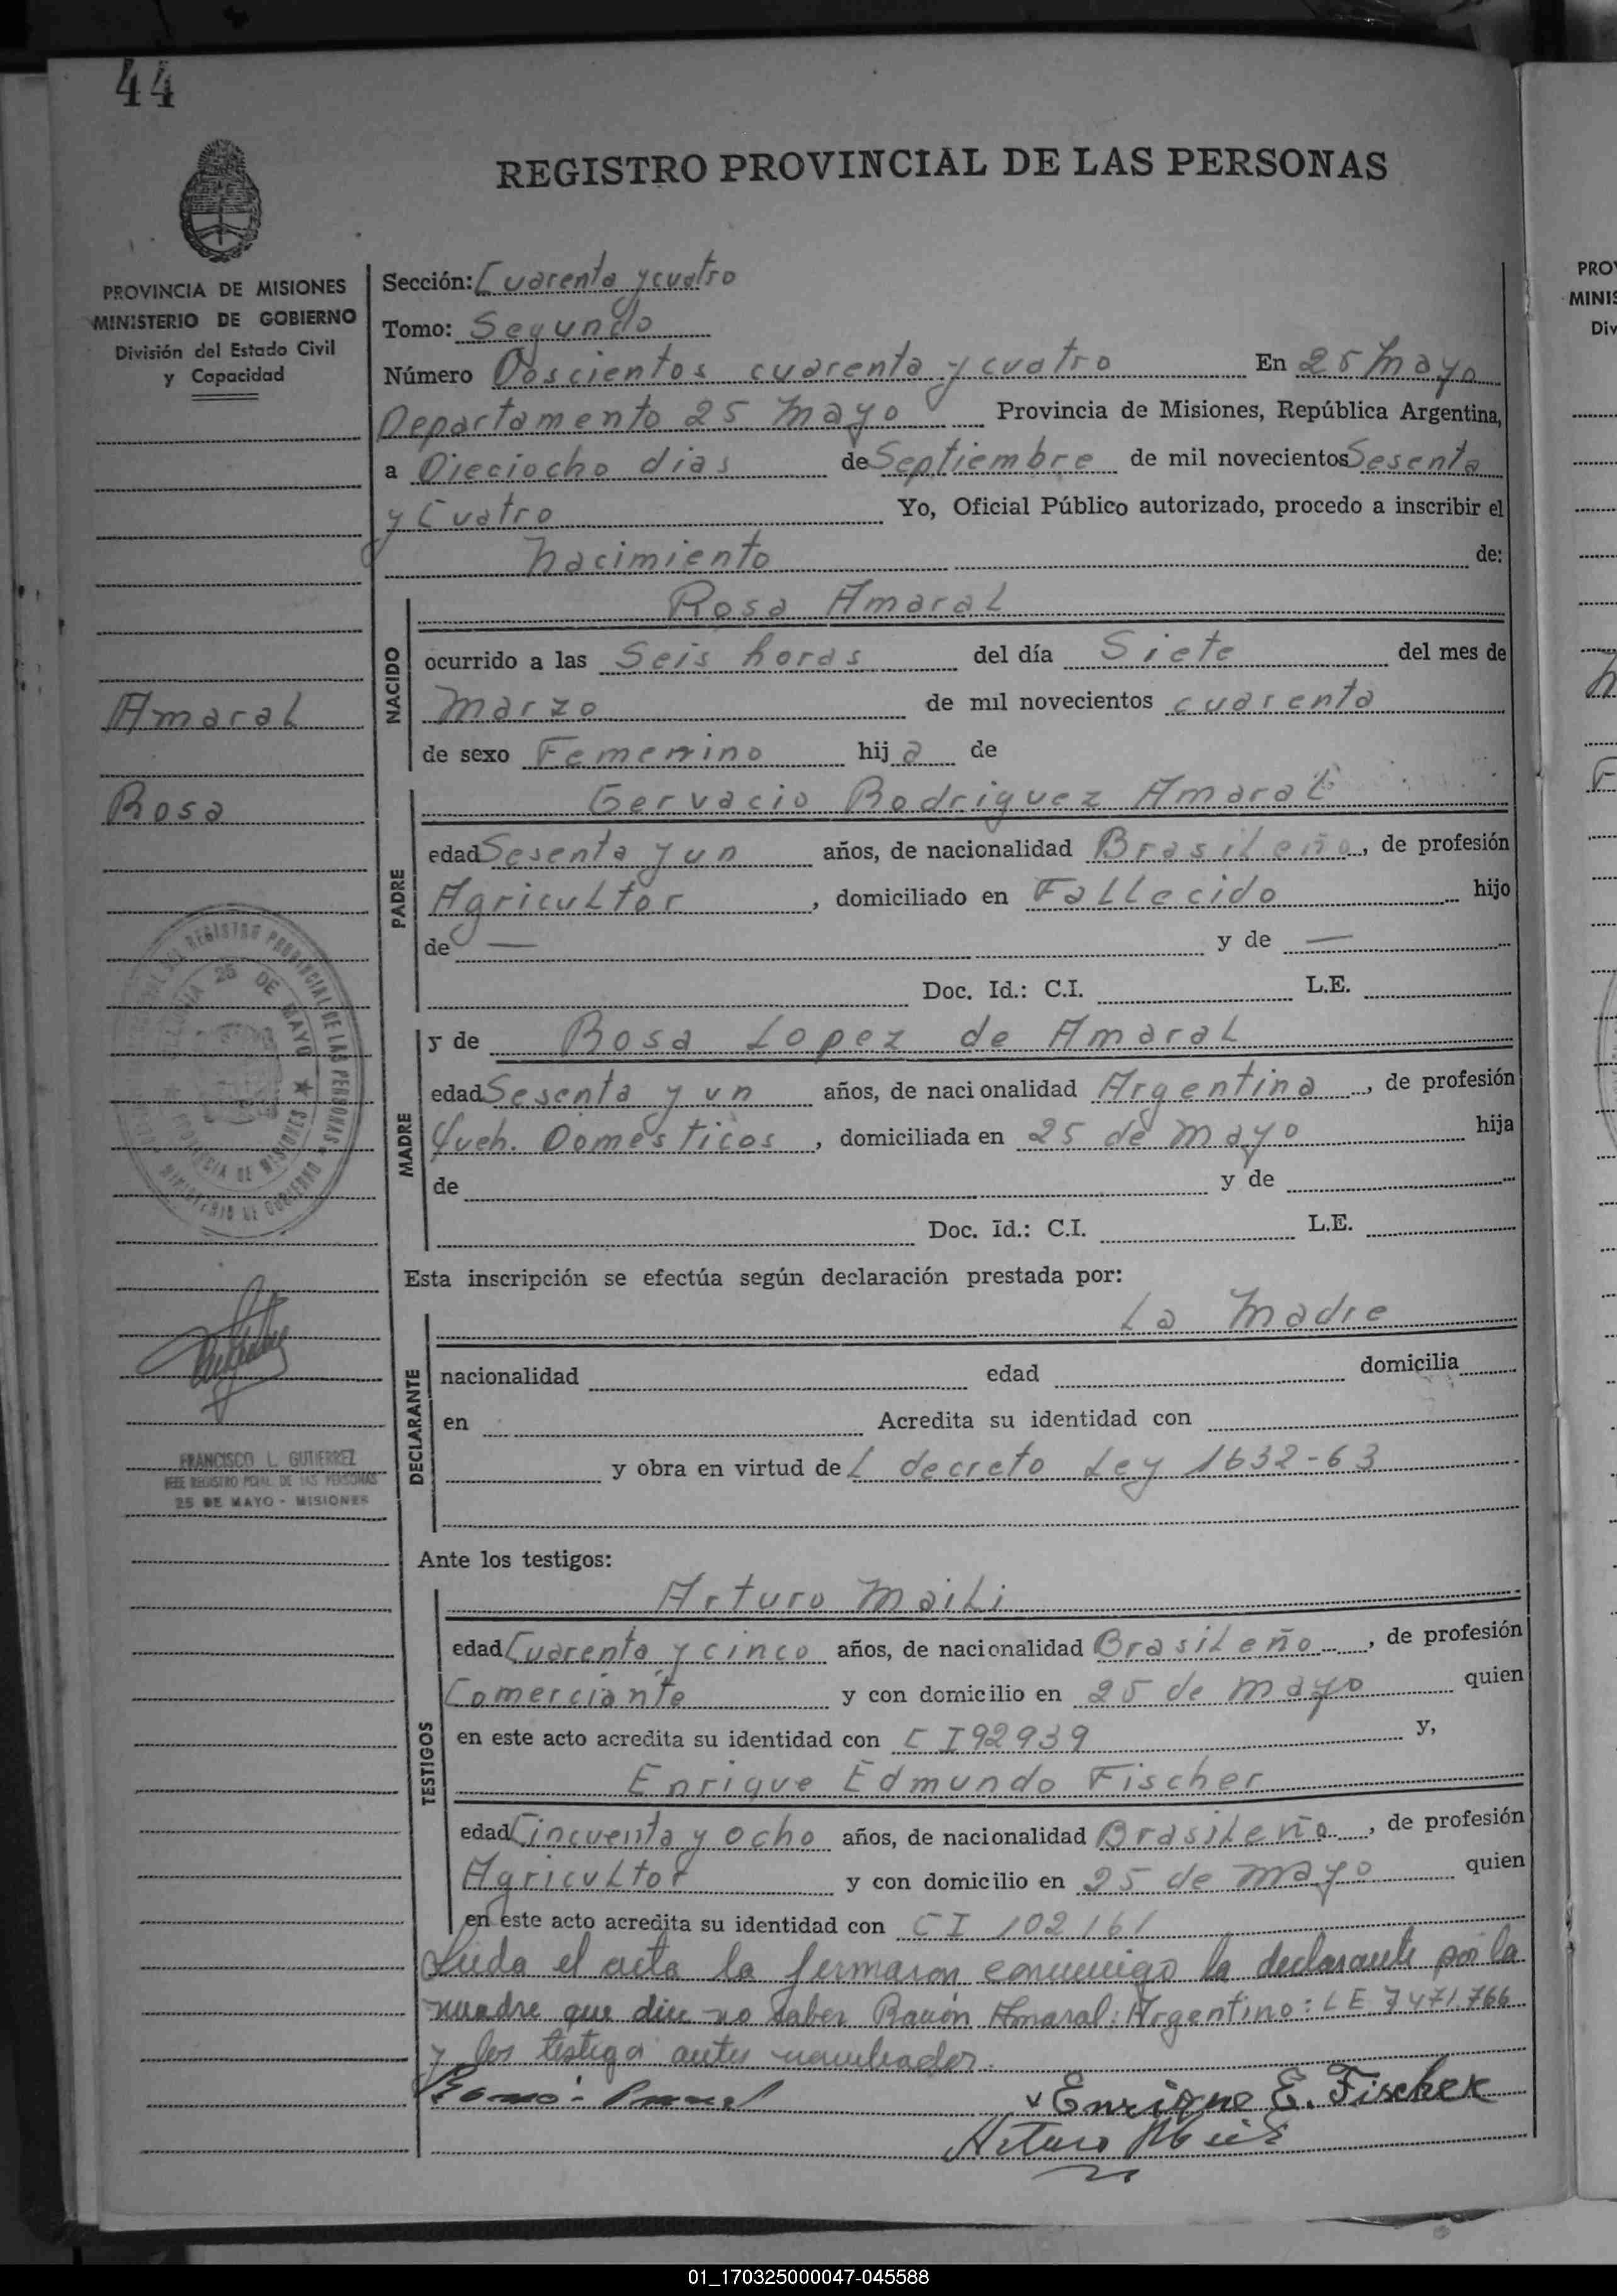 44
REGISTRO PROVINCIAL DE LAS PERSONAS
PROVINCIA DE MISIONES
MINISTERIO DE GOBIERNO
División del Estado Civil
y Capacidad
Sección: Cuarenta y cuatro
Tomo: Segundo
Número Doscientos cuarenta y cuatro En 25 Mayo
Departamento 25 Mayo Provincia de Misiones, República Argentina,
a Dieciocho dias de Septiembre de mil novecientos Sesenta
y Cuatro Yo, Oficial Público autorizado, procedo a inscribir el
Nacimiento de:
Rosa Amaral
NACIDO
ocurrido a las Seis horas del día Siete del mes de
Marzo de mil novecientos cuarenta
de sexo Femenino hij a de
Amaral
Rosa
Gervacio Rodriguez Amaral
PADRE
edad Sesenta y un años, de nacionalidad Brasileño, de profesión
Agricultor, domiciliado en Fallecido hijo
de — y de —
Doc. Id.: C.I. L.E.
y de Rosa Lopez de Amaral
MADRE
edad Sesenta y un años, de nacionalidad Argentina, de profesión
Queh. Domesticos, domiciliada en 25 de Mayo hija
de y de
Doc. Id.: C.I. L.E.
Esta inscripción se efectúa según declaración prestada por:
La Madre
DECLARANTE
nacionalidad edad domicilia
en Acredita su identidad con
y obra en virtud de L decreto Ley 1632-63
FRANCISCO L. GUTIERREZ
JEFE REGISTRO PCIAL. DE LAS PERSONAS
25 DE MAYO - MISIONES
Ante los testigos:
Arturo Maili
TESTIGOS
edad Cuarenta y cinco años, de nacionalidad Brasileño, de profesión
Comerciante y con domicilio en 25 de Mayo quien
en este acto acredita su identidad con C I 92939 y,
Enrique Edmundo Fischer
edad Cincuenta y ocho años, de nacionalidad Brasileño, de profesión
Agricultor y con domicilio en 25 de Mayo quien
en este acto acredita su identidad con C I 102161
Leida el acta la firmaron conmigo la declarante por la
madre que dice no saber Ramón Amaral: Argentino: L E 7471.766
y los testigos antes nombrados.
Enrique E. Fischer
Arturo
PRO
MINIS
Div
01_170325000047-045588